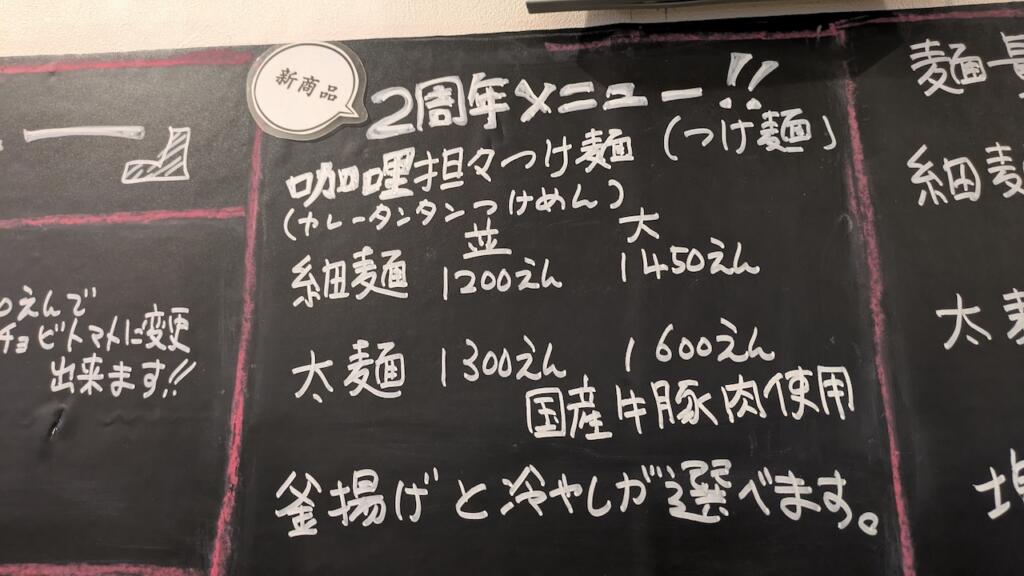 新商品
2周年メニュー!!
咖哩担々つけ麺(つけ麺)
(カレータンタンつけめん)
並 大
細麺 1200えん 1450えん
太麺 1300えん 1600えん
国産牛豚肉使用
釜揚げと冷やしが選べます。
0えんで
チョビトマトに変更
出来ます!!
麺量
細麦
太麦